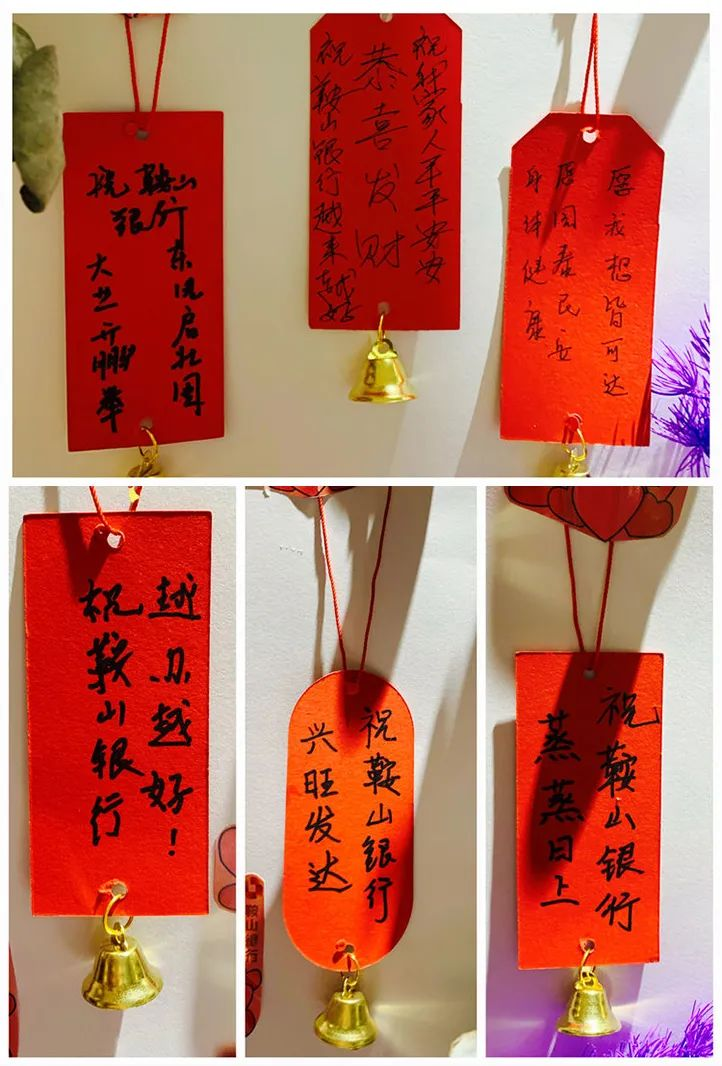 祝鞍山
银行
东风启壮图
大业开鹏举
祝我家人平平安安
恭喜发财
祝鞍山银行越来越好
愿我想皆可达
愿国泰民安
身体健康
祝鞍山银行
越办越好！
祝鞍山银行
兴旺发达
鞍山银行
祝鞍山银行
蒸蒸日上